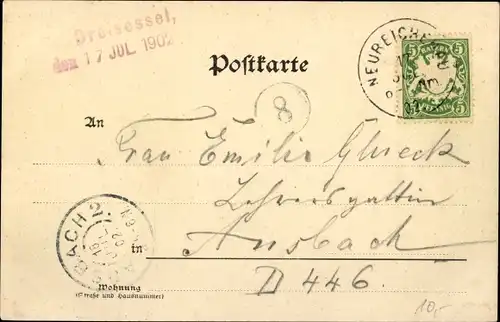 Dreisessel,
den 17 JUL. 1902
Postkarte
NEUREICHENAU
BAYERN
5 5
PFENNIG
8
An
Frau Emilie Glueck
Lehrersgattin
in Ansbach
D 446.
ANSBACH 2.
Wohnung
(Straße und Hausnummer)
10,-